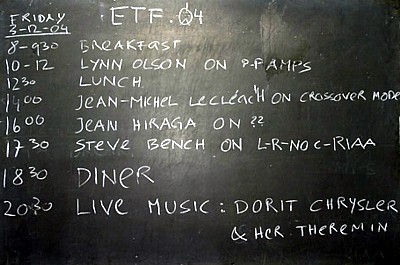 FRIDAY
3-12-04
ETF.04
8-930 BREAKFAST
10-12 LYNN OLSON ON P-P AMPS
1230 LUNCH
1400 JEAN-MICHEL LECLÉAC'H ON CROSSOVER MODE
1600 JEAN HIRAGA ON ??
1730 STEVE BENCH ON L-R-NO C-RIAA
1830 DINER
2030 LIVE MUSIC: DORIT CHRYSLER
& HER THEREMIN